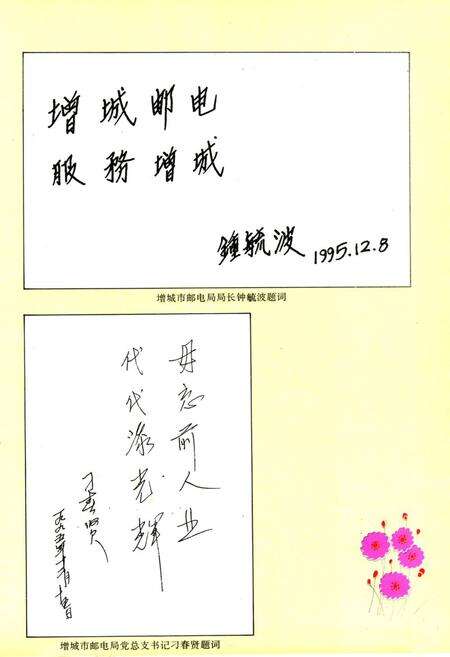 增城邮电
服務增城
鍾毓波 1995.12.8
增城市邮电局局长钟毓波题词
毋忘前人业
代代添光輝
刁春贤
一九九五年十二月十
增城市邮电局党总支书记刁春贤题词